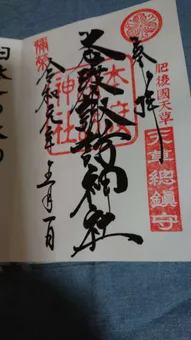 奉拝
肥後國天草
天草總鎮守
本渡諏訪神社
令和元年五月一日